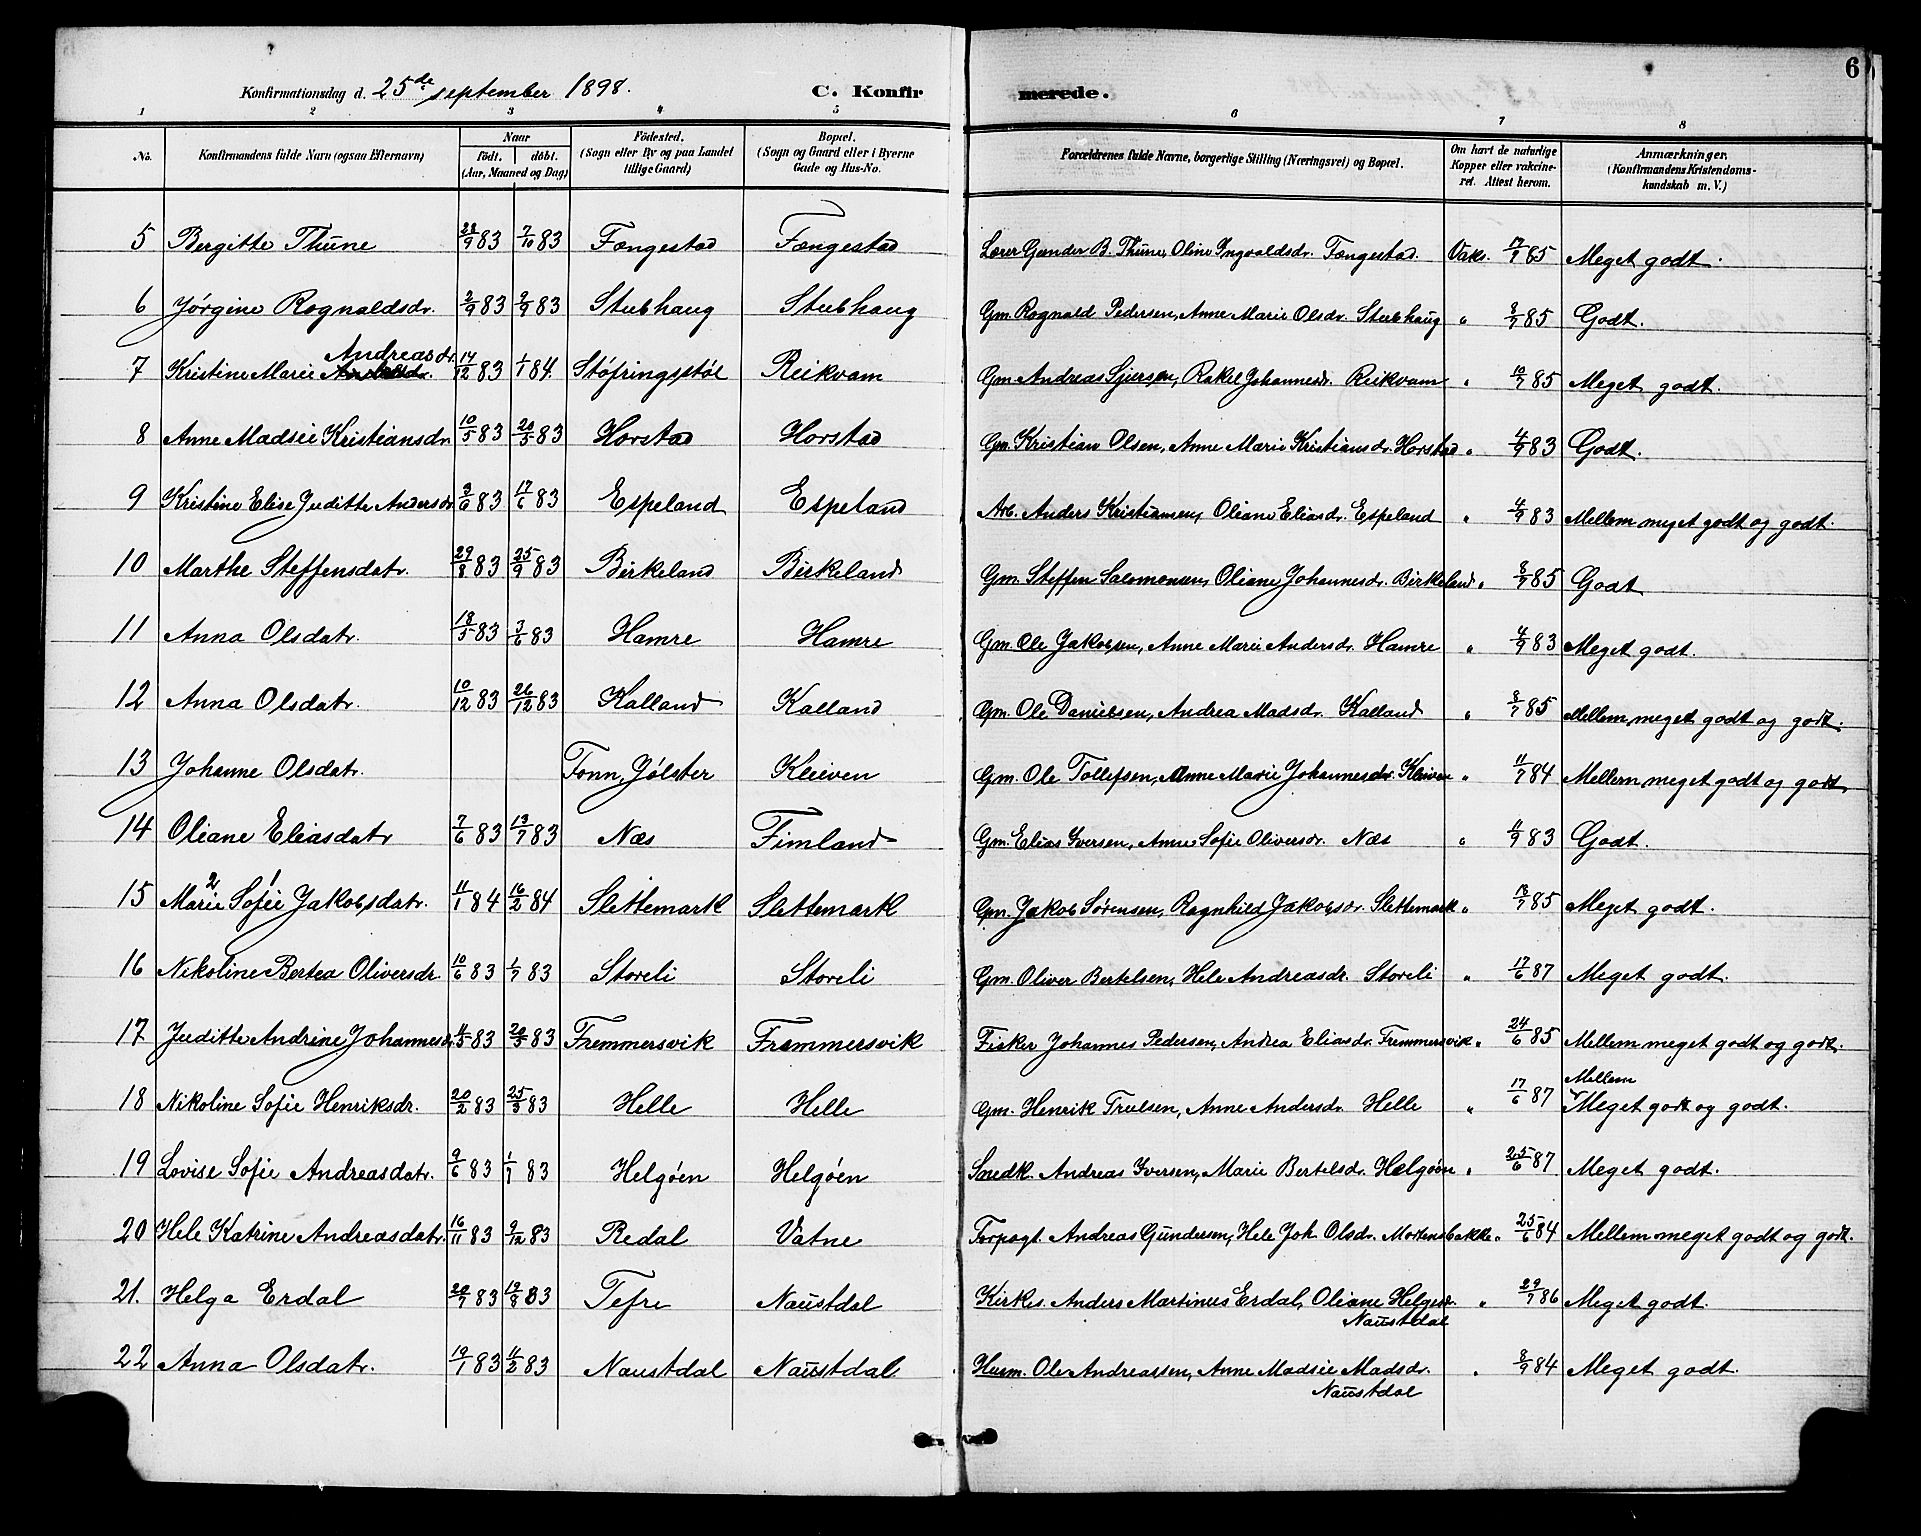 6
Konfirmationsdag d. 25de september 1898. C. Konfirmerede.
1 2 3 4 5 6 7 8
No. Konfirmandens fulde Navn (ogsaa Efternavn) Naar födt. döbt. (Aar, Maaned og Dag) Födested. (Sogn eller By og paa Landet tillige Gaard) Bopæl. (Sogn og Gaard eller i Byerne Gade og Hus-No. Forældrenes fulde Navne, borgerlige Stilling (Næringsvei) og Bopæl. Om havt de naturlige Kopper eller vakcineret. Attest herom. Anmærkninger. (Konfirmandens Kristendomskundskab m. V.)
5 Bergitte Thune 28/9 83 7/10 83 Fængestad Fængestad Lærer Gunder B. Thune, Oline Ingvaldsdr. Fængestad. Vaks. 17/7 85 Meget godt.
6 Jørgine Rognaldsdr. 2/9 83 9/9 83 Stubhaug Stubhaug Gm. Rognald Pedersen, Anne Marie Olsdr. Stubhaug " 8/7 85 Godt.
7 Kristine Marie Andreasdr. 14/12 83 1/1 84. Støfringsstøl Reikvam Gm Andreas Sjursen, Rakel Johannesdr. Reikvam " 10/7 85 Meget godt.
8 Anne Madsie Kristiansdr 10/5 83 20/5 83 Horstad Horstad Gm. Kristian Olsen, Anne Marie Kristiansdr. Horstad " 4/9 83 Godt.
9 Kristine Elise Juditte Andersdr 3/6 83 17/6 83 Espeland Espeland Arb. Anders Kristiansen, Oliane Eliasdr. Espeland " 4/9 83 Mellem meget godt og godt.
10 Marthe Steffensdatr. 29/8 83 25/9 83 Birkeland Birkeland Gm. Steffen Salomonsen, Oliane Johannesdr. Birkeland " 8/7 85 Godt
11 Anna Olsdatr. 18/5 83 3/6 83 Hamre Hamre Gm. Ole Jakobsen, Anne Marie Andersdr. Hamre " 4/9 83 Meget godt.
12 Anna Olsdatr. 10/12 83 26/12 83 Kalland Kalland Gm. Ole Danielsen, Andrea Madsdr. Kalland " 8/7 85 Mellem meget godt og godt.
13 Johanne Olsdatr. Fonn, Jølster Kleiven Gm. Ole Tollefsen, Anne Marie Johannesdr. Kleiven " 11/7 84 Mellem meget godt og godt
14 Oliane Eliasdatr 7/6 83 13/7 83 Næs Fimland Gm. Elias Iversen, Anne Sofie Oliversdr. Næs " 4/9 83 Godt.
15 Marie 2 Sofie 1 Jakobsdatr. 11/1 84 16/2 84 Slettemark Slettemark Gm. Jakob Sørensen, Ragnhild Jakobsdr. Slettemark " 18/7 85 Meget godt.
16 Nikoline Bertea Oliversdr. 10/6 83 1/7 83 Storeli Storeli Gm. Oliver Bertelsen, Hele Andreasdr. Storeli " 17/6 87 Meget godt.
17 Juditte Andrine Johannesdr. 4/5 83 20/5 83 Fremmersvik Fremmersvik Fisker Johannes Pedersen, Andrea Eliasdr. Fremmersvik " 24/6 85 Mellem meget godt og godt.
18 Nikoline Sofie Henriksdr. 20/2 83 25/3 83 Helle Helle Gm. Henrik Truelsen, Anne Andersdr. Helle " 17/6 87 Mellem Meget godt og godt.
19 Lovise Sofie Andreasdatr. 9/6 83 1/7 83 Helgøen Helgøen Snedk. Andreas Iversen, Marie Bertelsdr. Helgøen " 25/6 87 Meget godt.
20 Hele Katrine Andreasdatr. 16/11 83 9/12 83 Redal Vatne Forpagt. Andreas Gundersen, Hele Joh. Olsdr. Mortensbakke " 25/6 84 Mellem meget godt og godt.
21. Helga Erdal 20/7 83 19/8 83 Tefre Naustdal Kirkes. Anders Martinus Erdal, Oliane Helgesdr. Naustdal " 29/7 86 Meget godt.
22 Anna Olsdatr. 19/1 83 11/2 83 Naustdal Naustdal Husm. Ole Andreassen, Anne Madsie Madsdr. Naustdal " 8/9 84 Meget godt.